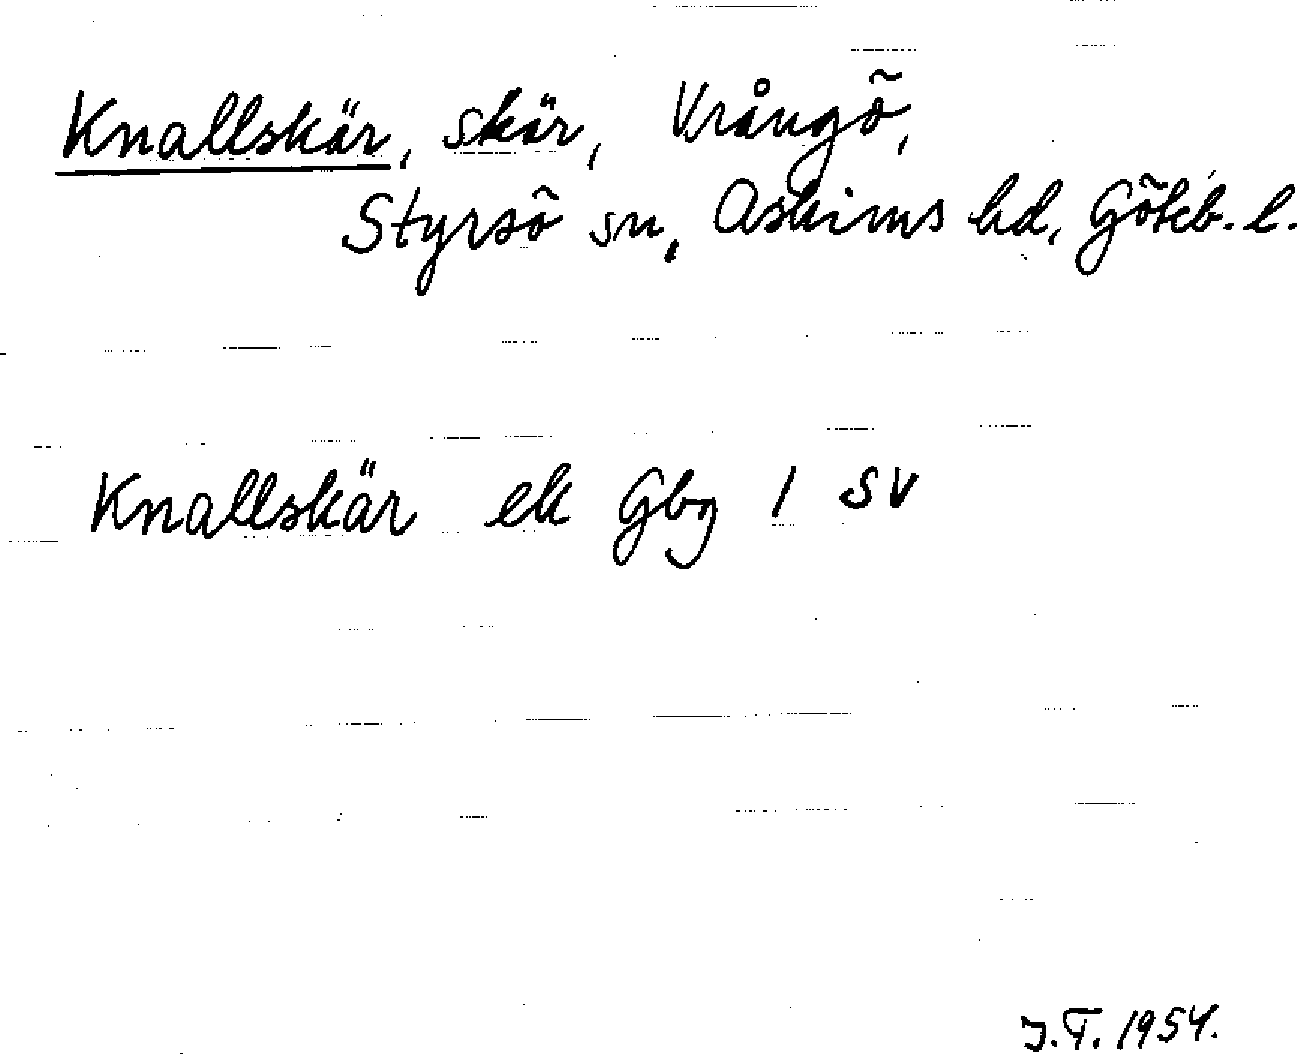 Knallskär, skär, Vrångö,
Styrsö sn, Askims hd, Göteb. l.
Knallskär ek Gbg 1 SV
J.T. 1954.